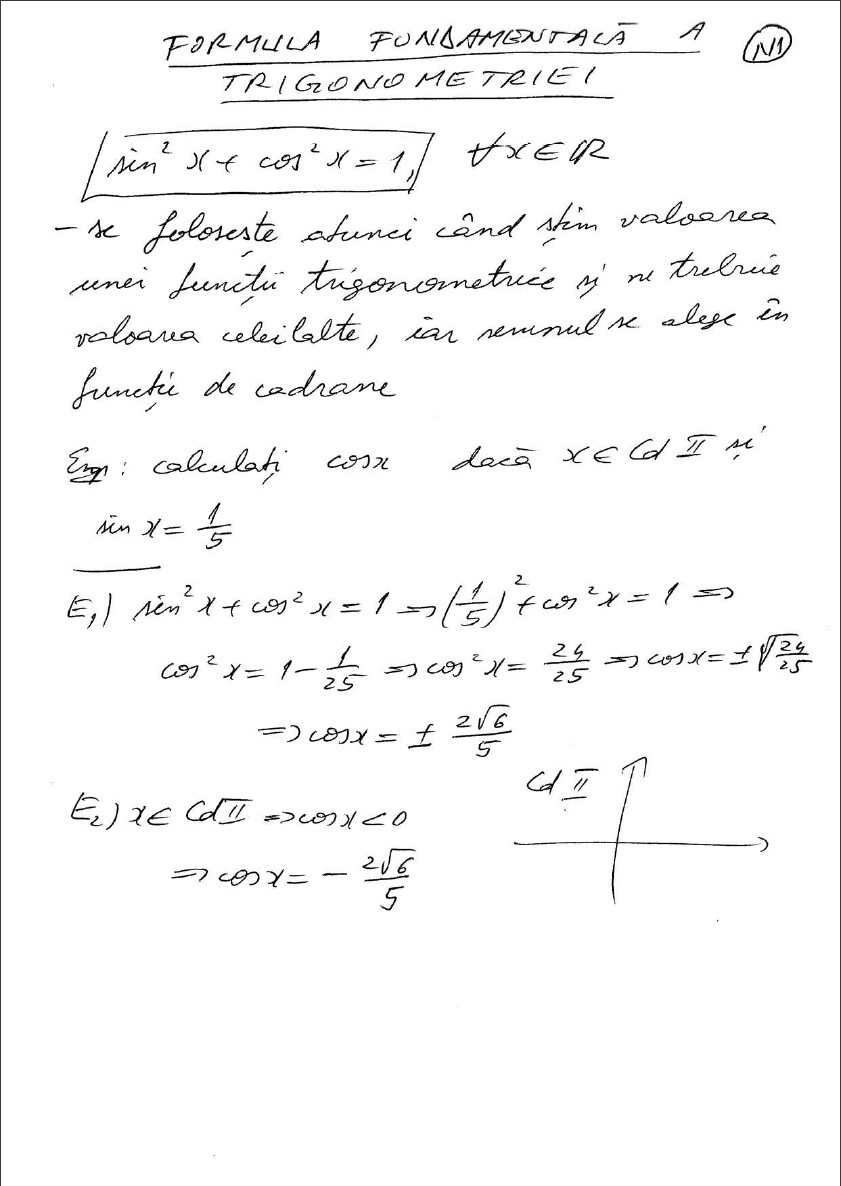 FORMULA FUNDAMENTALĂ A
N1
TRIGONOMETRIEI
sin² x + cos² x = 1, ∀x∈ℝ
- se folosește atunci când știm valoarea
unei funcții trigonometrice și ne trebuie
valoarea celeilalte, iar semnul se alege în
funcție de cadrane
Exp: calculați cosx dacă x∈Cd II și
sin x = 1/5
E₁) sin² x + cos² x = 1 ⇒ (1/5)² + cos² x = 1 ⇒
cos² x = 1 - 1/25 ⇒ cos² x = 24/25 ⇒ cosx = ±√(24/25)
⇒ cosx = ± 2√6/5
E₂) x∈ Cd II ⇒ cosx < 0
Cd II
⇒ cosx = - 2√6/5